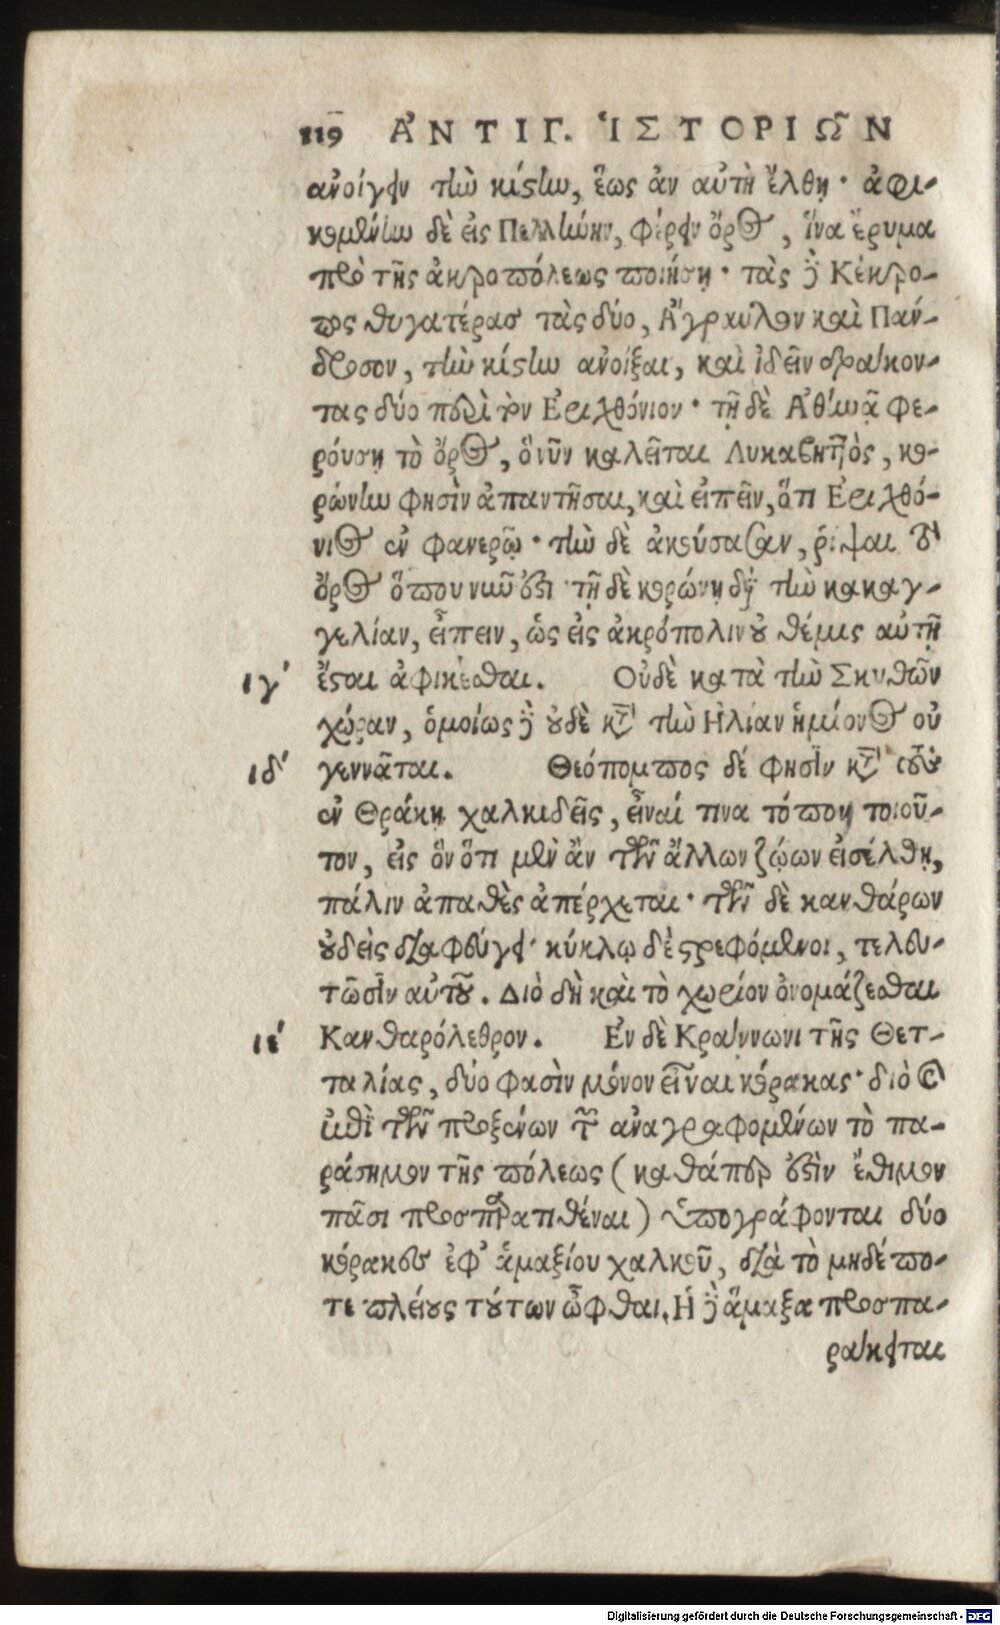 119 ἈΝΤΙΓ. ἹΣΤΟΡΙΩ͂Ν
ἀνοίγειν τὴν κίστην, ἕως ἂν αὐτὴ ἔλθῃ· ἀφι-
κομένην δὲ εἰς Πελλήνην, φέρειν ὄρος, ἵνα ἔρυμα
πρὸ τῆς ἀκροπόλεως ποιήσῃ· τὰς δὲ Κέκρο-
πος θυγατέρας τὰς δύο, Ἄγραυλον καὶ Πάν-
δροσον, τὴν κίστην ἀνοῖξαι, καὶ ἰδεῖν δράκον-
τας δύο περὶ τὸν Ἐριχθόνιον· τῇ δὲ Ἀθηνᾷ φε-
ρούσῃ τὸ ὄρος, ὃ νῦν καλεῖται Λυκαβηττὸς, κο-
ρώνην φησὶν ἀπαντῆσαι, καὶ εἰπεῖν, ὅτι Ἐριχθό-
νιος ἐν φανερῷ· τὴν δὲ ἀκούσασαν, ῥίψαι τὸ
ὄρος ὅπου νῦν ἐστι· τῇ δὲ κορώνῃ διὰ τὴν κακαγ-
γελίαν, εἶπειν, ὡς εἰς ἀκρόπολιν οὐ θέμις αὐτῇ
ιγ´ ἔσται ἀφικέσθαι. Οὐδὲ κατὰ τὴν Σκυθῶν
χώραν, ὁμοίως δὲ οὐδὲ κατὰ τὴν Ηλίαν ἡμίονος οὐ
ιδ´ γεννᾶται. Θεόπομπος δέ φησιν κατὰ τοὺς
ἐν Θράκῃ χαλκιδεῖς, εἶναί τινα τόπον τοιοῦ-
τον, εἰς ὃν ὅτι μὲν ἂν τῶν ἄλλων ζῴων εἰσέλθῃ,
πάλιν ἀπαθὲς ἀπέρχεται· τῶν δὲ κανθάρων
οὐδεὶς διαφεύγει· κύκλῳ δὲ στρεφόμενοι, τελευ-
τῶσιν αὐτοῦ. Διὸ δὴ καὶ τὸ χωρίον ὀνομάζεσθαι
ιε´ Κανθαρόλεθρον. Ἐν δὲ Κράννωνι τῆς Θετ-
ταλίας, δύο φασὶν μόνον εἶναι κόρακας· διὸ καὶ
ἐπὶ τῶν προξένων τῶν ἀναγραφομένων τὸ πα-
ράσημον τῆς πόλεως (καθάπερ ἐστὶν ἔθιμον
πᾶσι προσπαρατιθέναι) ὑπογράφονται δύο
κόρακες ἐφ᾽ ἁμαξίου χαλκοῦ, διὰ τὸ μηδέπο-
τε πλείους τούτων ὦφθαι. Ἡ δὲ ἅμαξα προσπα-
ράκειται
Digitalisierung gefördert durch die Deutsche Forschungsgemeinschaft - DFG